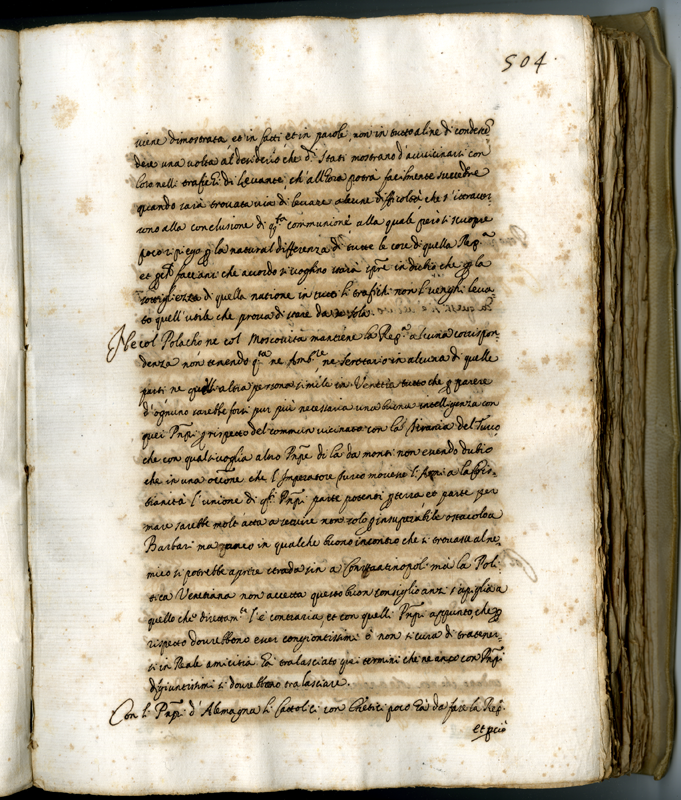 504.
viene dimostrata et in fatti et in parole, non in tutto aline di condesc͂
dere una volta al desiderio che di Stati mostrano d'avvicinarsi con
loro nelli traffichi di Levante, ch'all'hora potrà facilmente succedre
quando sarà trovata via di levare alcune difficoltà che s'attraver-
sono alla conclusione di q.ta communione alla quale però si scuopre
poco ripiego p la natural differenza di tutte le cose di quella Rep.a
et facciasi che acordo si voglino sarà sp͂re in dichio che p la
sottigliezza di quella natione in tutti li traffichi non l'venghi leva-
to quell'utile che prova di stare da se sola.
Ne col Polacho ne col Moscovita mantiene la Rep.a alcuna corrispon-
denza non tenendo q.ta ne Amb.re ne secretario in alcuna di quelle
parti ne quelli altra persona simile in Venetia tutto che p parere
d'ognuno sarebbe forsi pur più necessaria una buona intelligenza con
quei Pn͂pi p rispetto del commun vicinato con la tirania del Turco
che con qual si voglia altro Pn͂pe di la da monti non essendo dubio
che in una occ͂one che l'Imperatore turco movesse l'Armi a la Chris-
tianità l'unione di q.sti Pn͂pi parte potenti p terra et parte per
mare sarebbe molt'atta a servire non solo p insuperabile ostacolo a
Barbari ma in qualche buono incontro che si trovasse al ne-
mico si potrebbe aprire strada sin a Constantinopoli mà la Poli-
tica Venetiana non accetta questo buon consiglio anzi s'appiglia a
quello che direttam.te l'è contraria, et con quelli Pn͂pi appunto, che p
rispetto dovrebbono esser congiontissimi ò non si cura di trattener-
si in Reale amicitia tralasciato qui termini che ne anco con Pn͂pi
disgiuntissimi si dovrebbono tralasciare.
Con li Pn͂pi d'Alemagna li Cattolici, con Heretici poco hà da fare la Rep.
et pciò